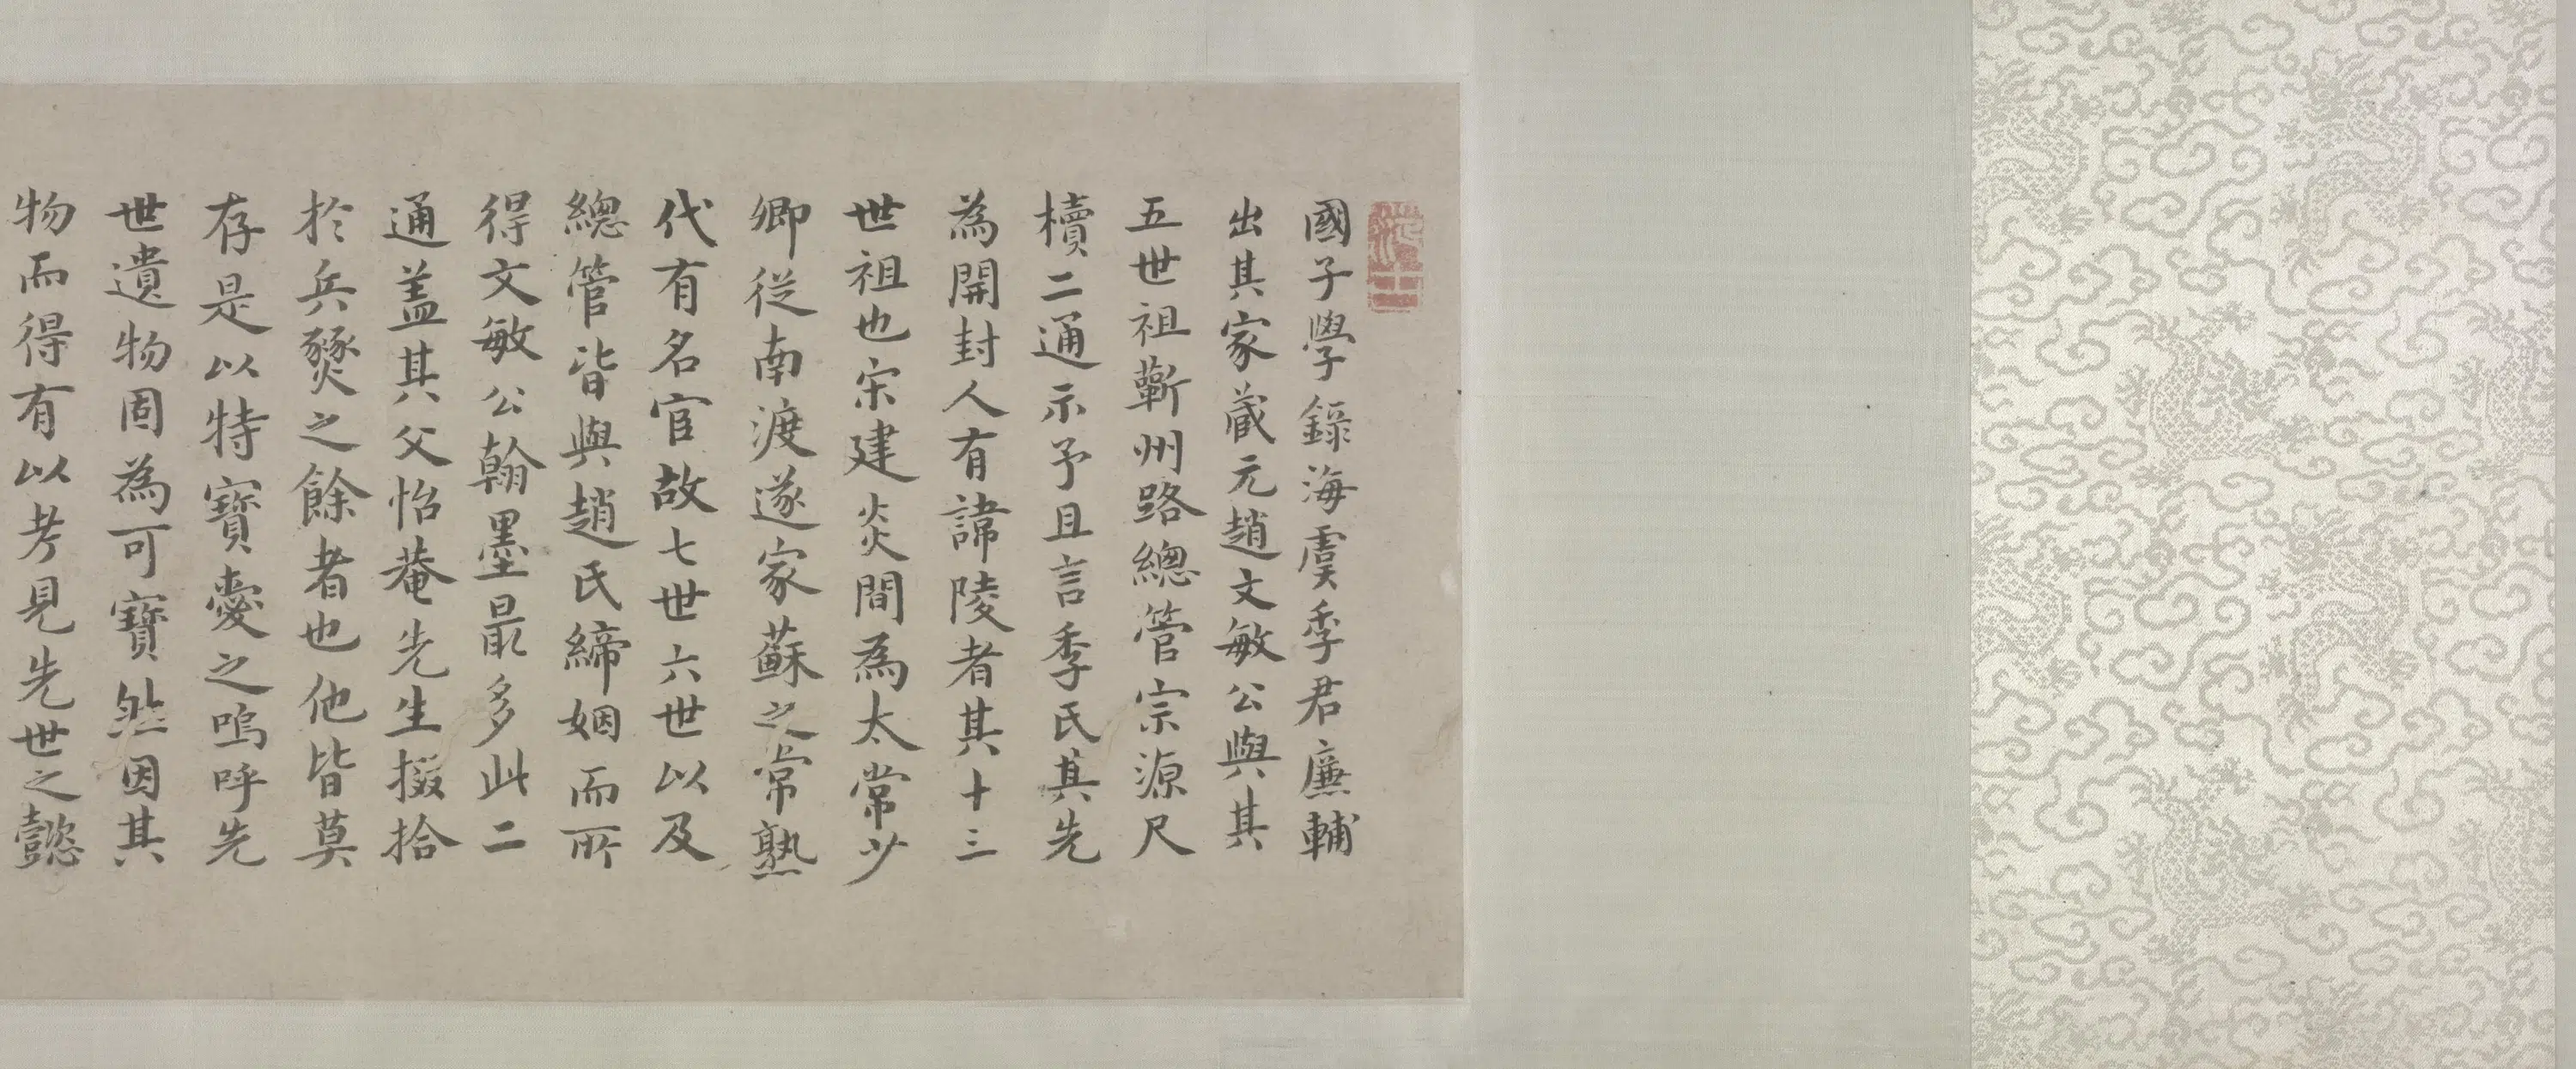 國子學錄海虞季君廉輔
出其家藏元趙文敏公與其
五世祖蘄州路總管宗源尺
櫝二通示予且言季氏其先
為開封人有諱陵者其十三
世祖也宋建炎間為太常少
卿從南渡遂家蘇之常熟
代有名官故七世六世以及
總管皆與趙氏締姻而所
得文敏公翰墨最多此二
通盖其父怡菴先生掇拾
於兵燹之餘者也他皆莫
存是以特寶愛之嗚呼先
世遺物固為可寶然因其
物而得有以考見先世之懿